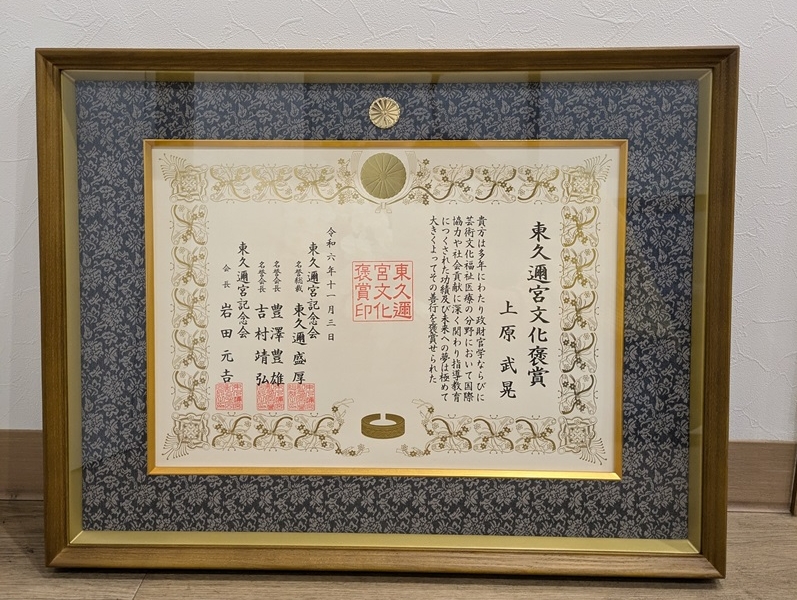 東久邇宮文化褒賞
上原武晃
貴方は多年にわたり政財官学ならびに
芸術文化福祉医療の分野において国際
協力や社会貢献に深く関わり指導教育
につくされた功績及び未来への夢は極めて
大きくよってその善行を褒賞せられた
東久邇
宮文化
褒賞印
令和六年十一月三日
東久邇宮記念会
名誉総裁 東久邇盛厚
名誉会長 豊澤豊雄
名誉会長 吉村靖弘
東久邇宮記念会
会長 岩田元吉